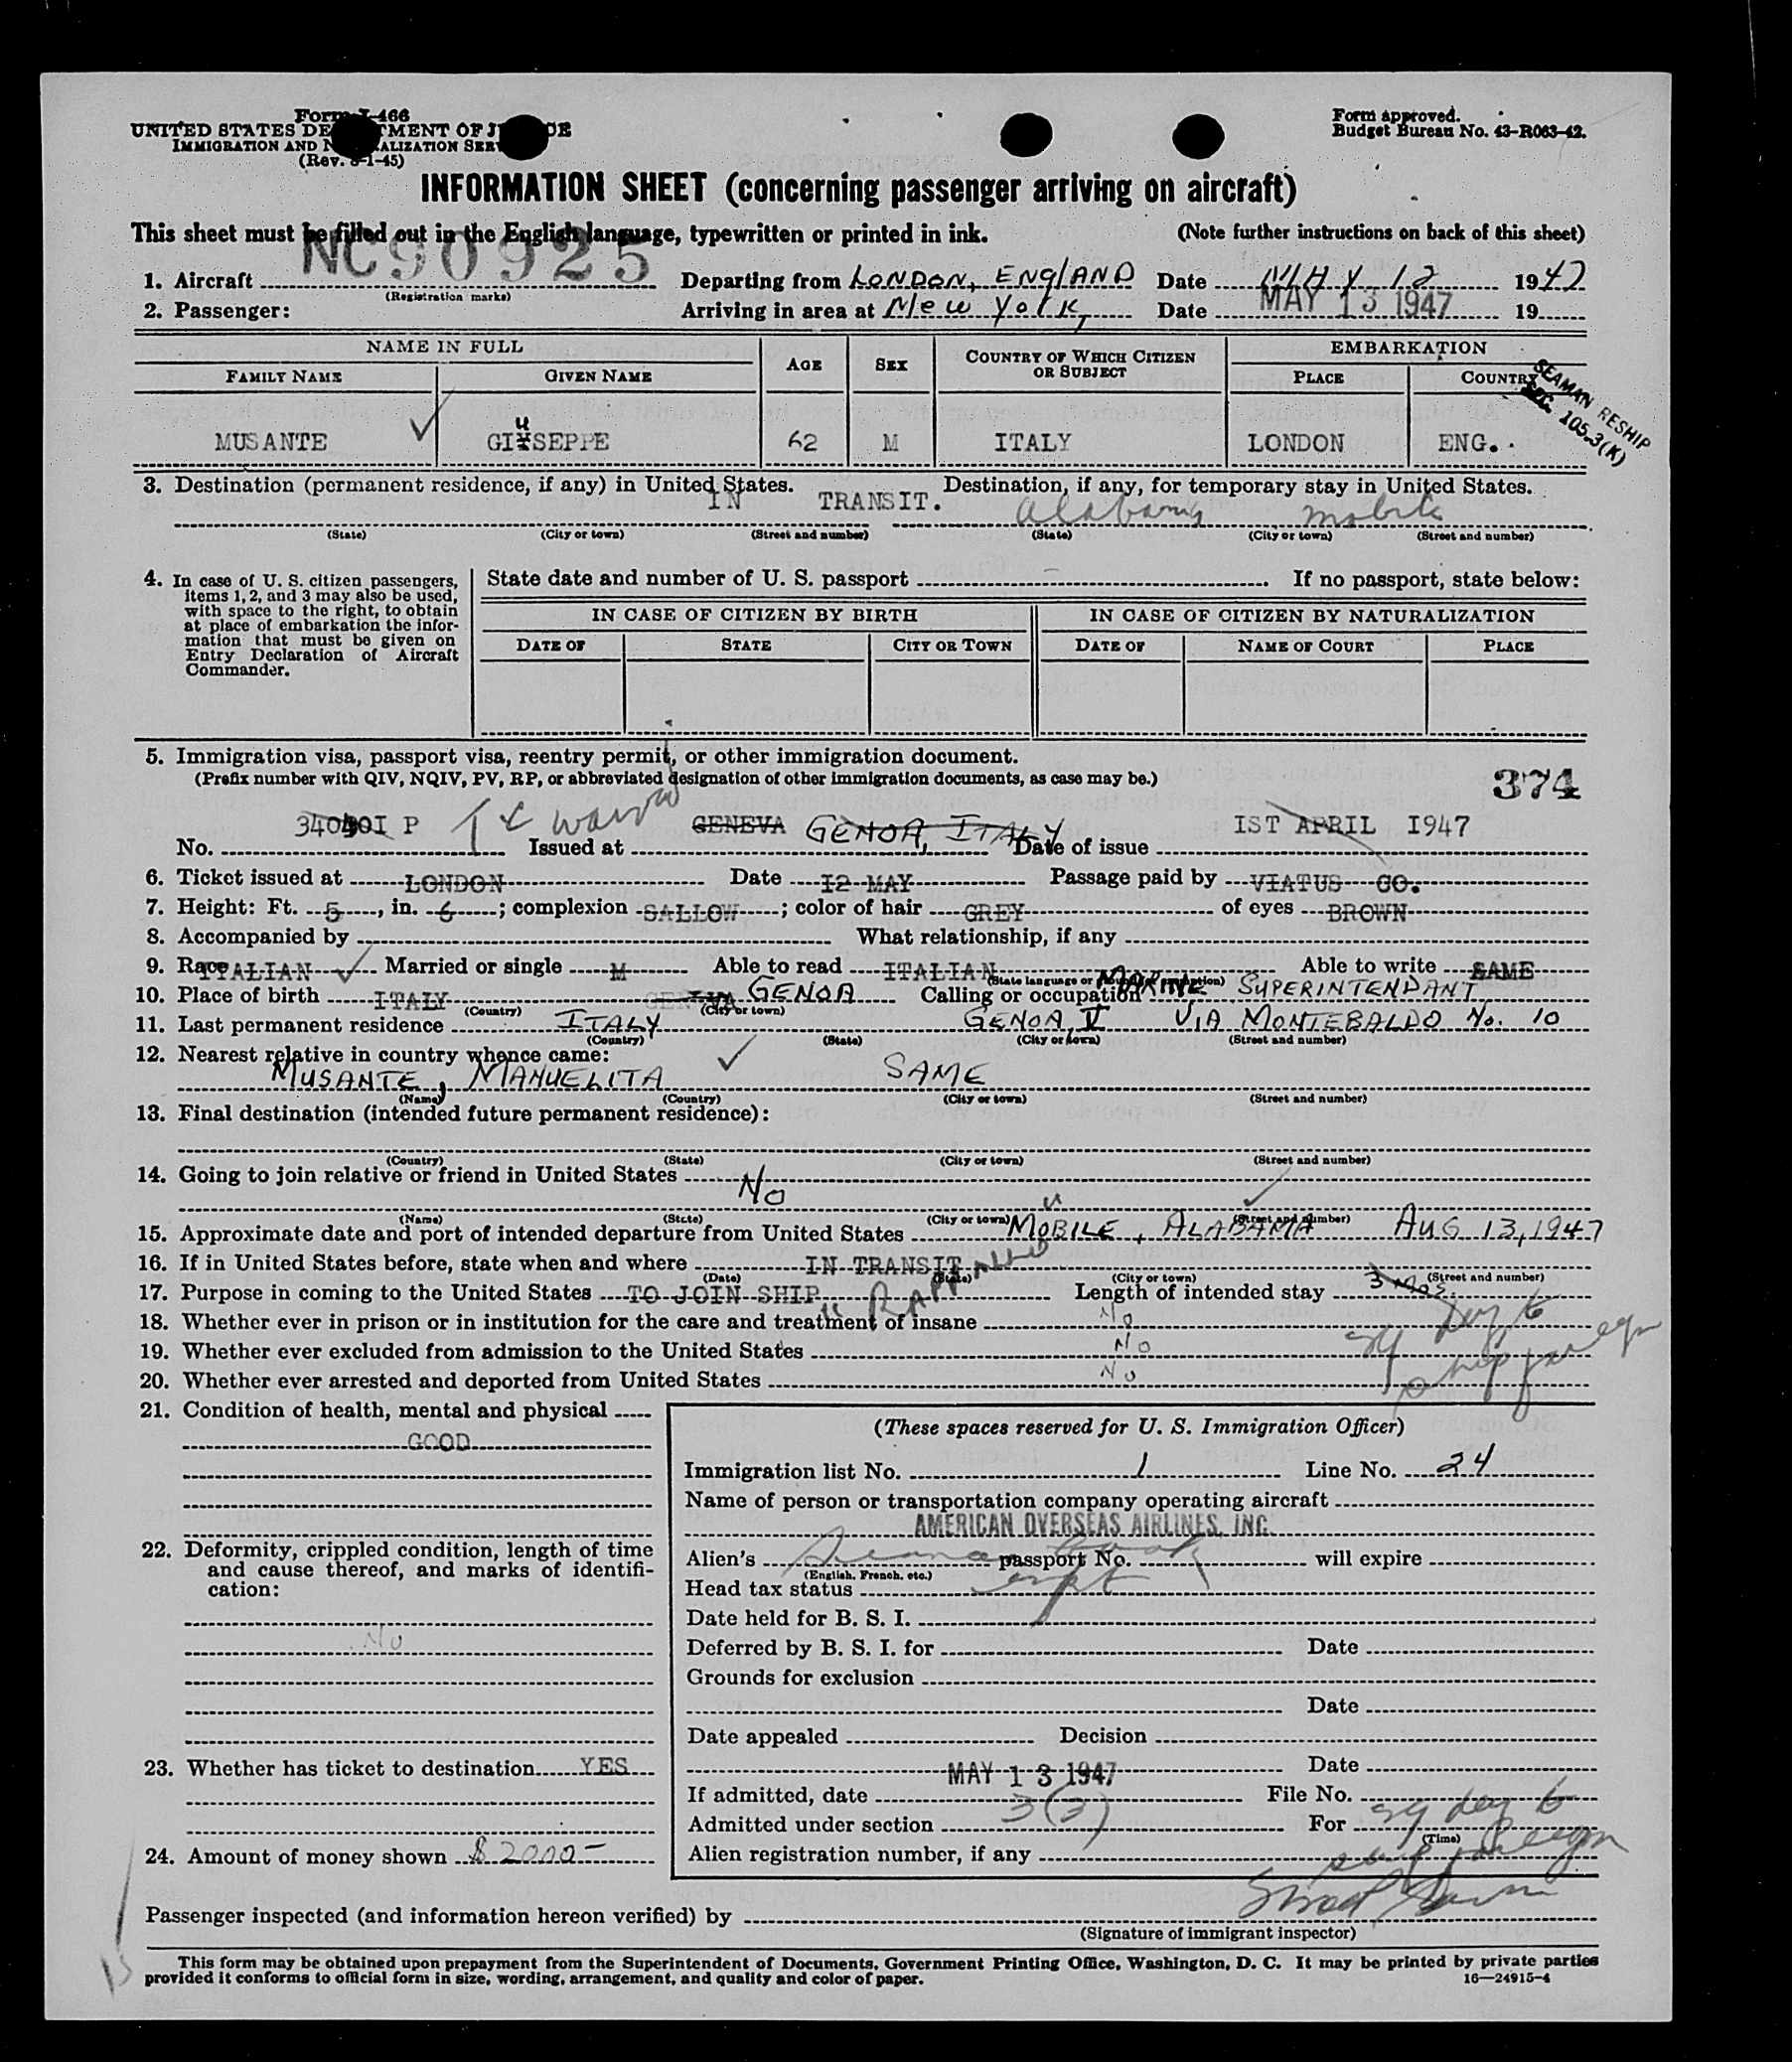 Form I-466
UNITED STATES DEPARTMENT OF JUSTICE
IMMIGRATION AND NATURALIZATION SERVICE
(Rev. 8-1-45)
Form approved.
Budget Bureau No. 43-R063-42.
INFORMATION SHEET (concerning passenger arriving on aircraft)
This sheet must be filled out in the English language, typewritten or printed in ink. (Note further instructions on back of this sheet)
1. Aircraft NC90925 Departing from LONDON, ENGLAND Date MAY 12 1947
(Registration marks)
2. Passenger: Arriving in area at New York, Date MAY 13 1947 19
NAME IN FULL AGE SEX COUNTRY OF WHICH CITIZEN OR SUBJECT EMBARKATION
FAMILY NAME GIVEN NAME PLACE COUNTRY
SEAMAN RESHIP
SEC. 105.3(K)
MUSANTE GIUSEPPE 62 M ITALY LONDON ENG.
3. Destination (permanent residence, if any) in United States. Destination, if any, for temporary stay in United States.
IN TRANSIT. Alabama Mobile
(State) (City or town) (Street and number) (State) (City or town) (Street and number)
4. In case of U. S. citizen passengers, items 1, 2, and 3 may also be used, with space to the right, to obtain at place of embarkation the information that must be given on Entry Declaration of Aircraft Commander.
State date and number of U. S. passport If no passport, state below:
IN CASE OF CITIZEN BY BIRTH IN CASE OF CITIZEN BY NATURALIZATION
DATE OF STATE CITY OR TOWN DATE OF NAME OF COURT PLACE
5. Immigration visa, passport visa, reentry permit, or other immigration document.
(Prefix number with QIV, NQIV, PV, RP, or abbreviated designation of other immigration documents, as case may be.)
374
No. P Issued at GENEVA GENOA, ITALY Date of issue IST APRIL I947
6. Ticket issued at LONDON Date I2 MAY Passage paid by VIATUS CO.
7. Height: Ft. 5, in. 6; complexion SALLOW; color of hair GREY of eyes BROWN
8. Accompanied by What relationship, if any
9. Race ITALIAN Married or single M Able to read ITALIAN Able to write SAME
(State language or grounds exemption)
10. Place of birth ITALY GENEVA GENOA Calling or occupation MARINE SUPERINTENDANT
(Country) (City or town)
11. Last permanent residence ITALY GENOA V VIA MONTEBALDO No. 10
(Country) (State) (City or town) (Street and number)
12. Nearest relative in country whence came:
MUSANTE, MANUELITA SAME
(Name) (Country) (City or town) (Street and number)
13. Final destination (intended future permanent residence):
(Country) (State) (City or town) (Street and number)
14. Going to join relative or friend in United States No
(Name) (State) (City or town) (Street and number)
15. Approximate date and port of intended departure from United States MOBILE, ALABAMA AUG 13, 1947
16. If in United States before, state when and where IN TRANSIT
(Date) (State) (City or town) (Street and number)
17. Purpose in coming to the United States TO JOIN SHIP "RAPALLO" Length of intended stay 3 mos.
18. Whether ever in prison or in institution for the care and treatment of insane No
19. Whether ever excluded from admission to the United States No
20. Whether ever arrested and deported from United States No
29 day to
ship foreign
21. Condition of health, mental and physical
GOOD
(These spaces reserved for U. S. Immigration Officer)
Immigration list No. 1 Line No. 24
Name of person or transportation company operating aircraft
AMERICAN OVERSEAS AIRLINES, INC.
22. Deformity, crippled condition, length of time and cause thereof, and marks of identification:
No
Alien's Seaman book passport No. will expire
(English, French, etc.)
Head tax status
Date held for B. S. I.
Deferred by B. S. I. for Date
Grounds for exclusion
Date
Date appealed Decision
Date
23. Whether has ticket to destination YES
If admitted, date MAY 13 1947 File No.
Admitted under section 3(3) For 29 day to
(Time)
ship foreign
24. Amount of money shown $2000-
Alien registration number, if any
Passenger inspected (and information hereon verified) by
(Signature of immigrant inspector)
This form may be obtained upon prepayment from the Superintendent of Documents, Government Printing Office, Washington, D. C. It may be printed by private parties
provided it conforms to official form in size, wording, arrangement, and quality and color of paper.
16—24915-4